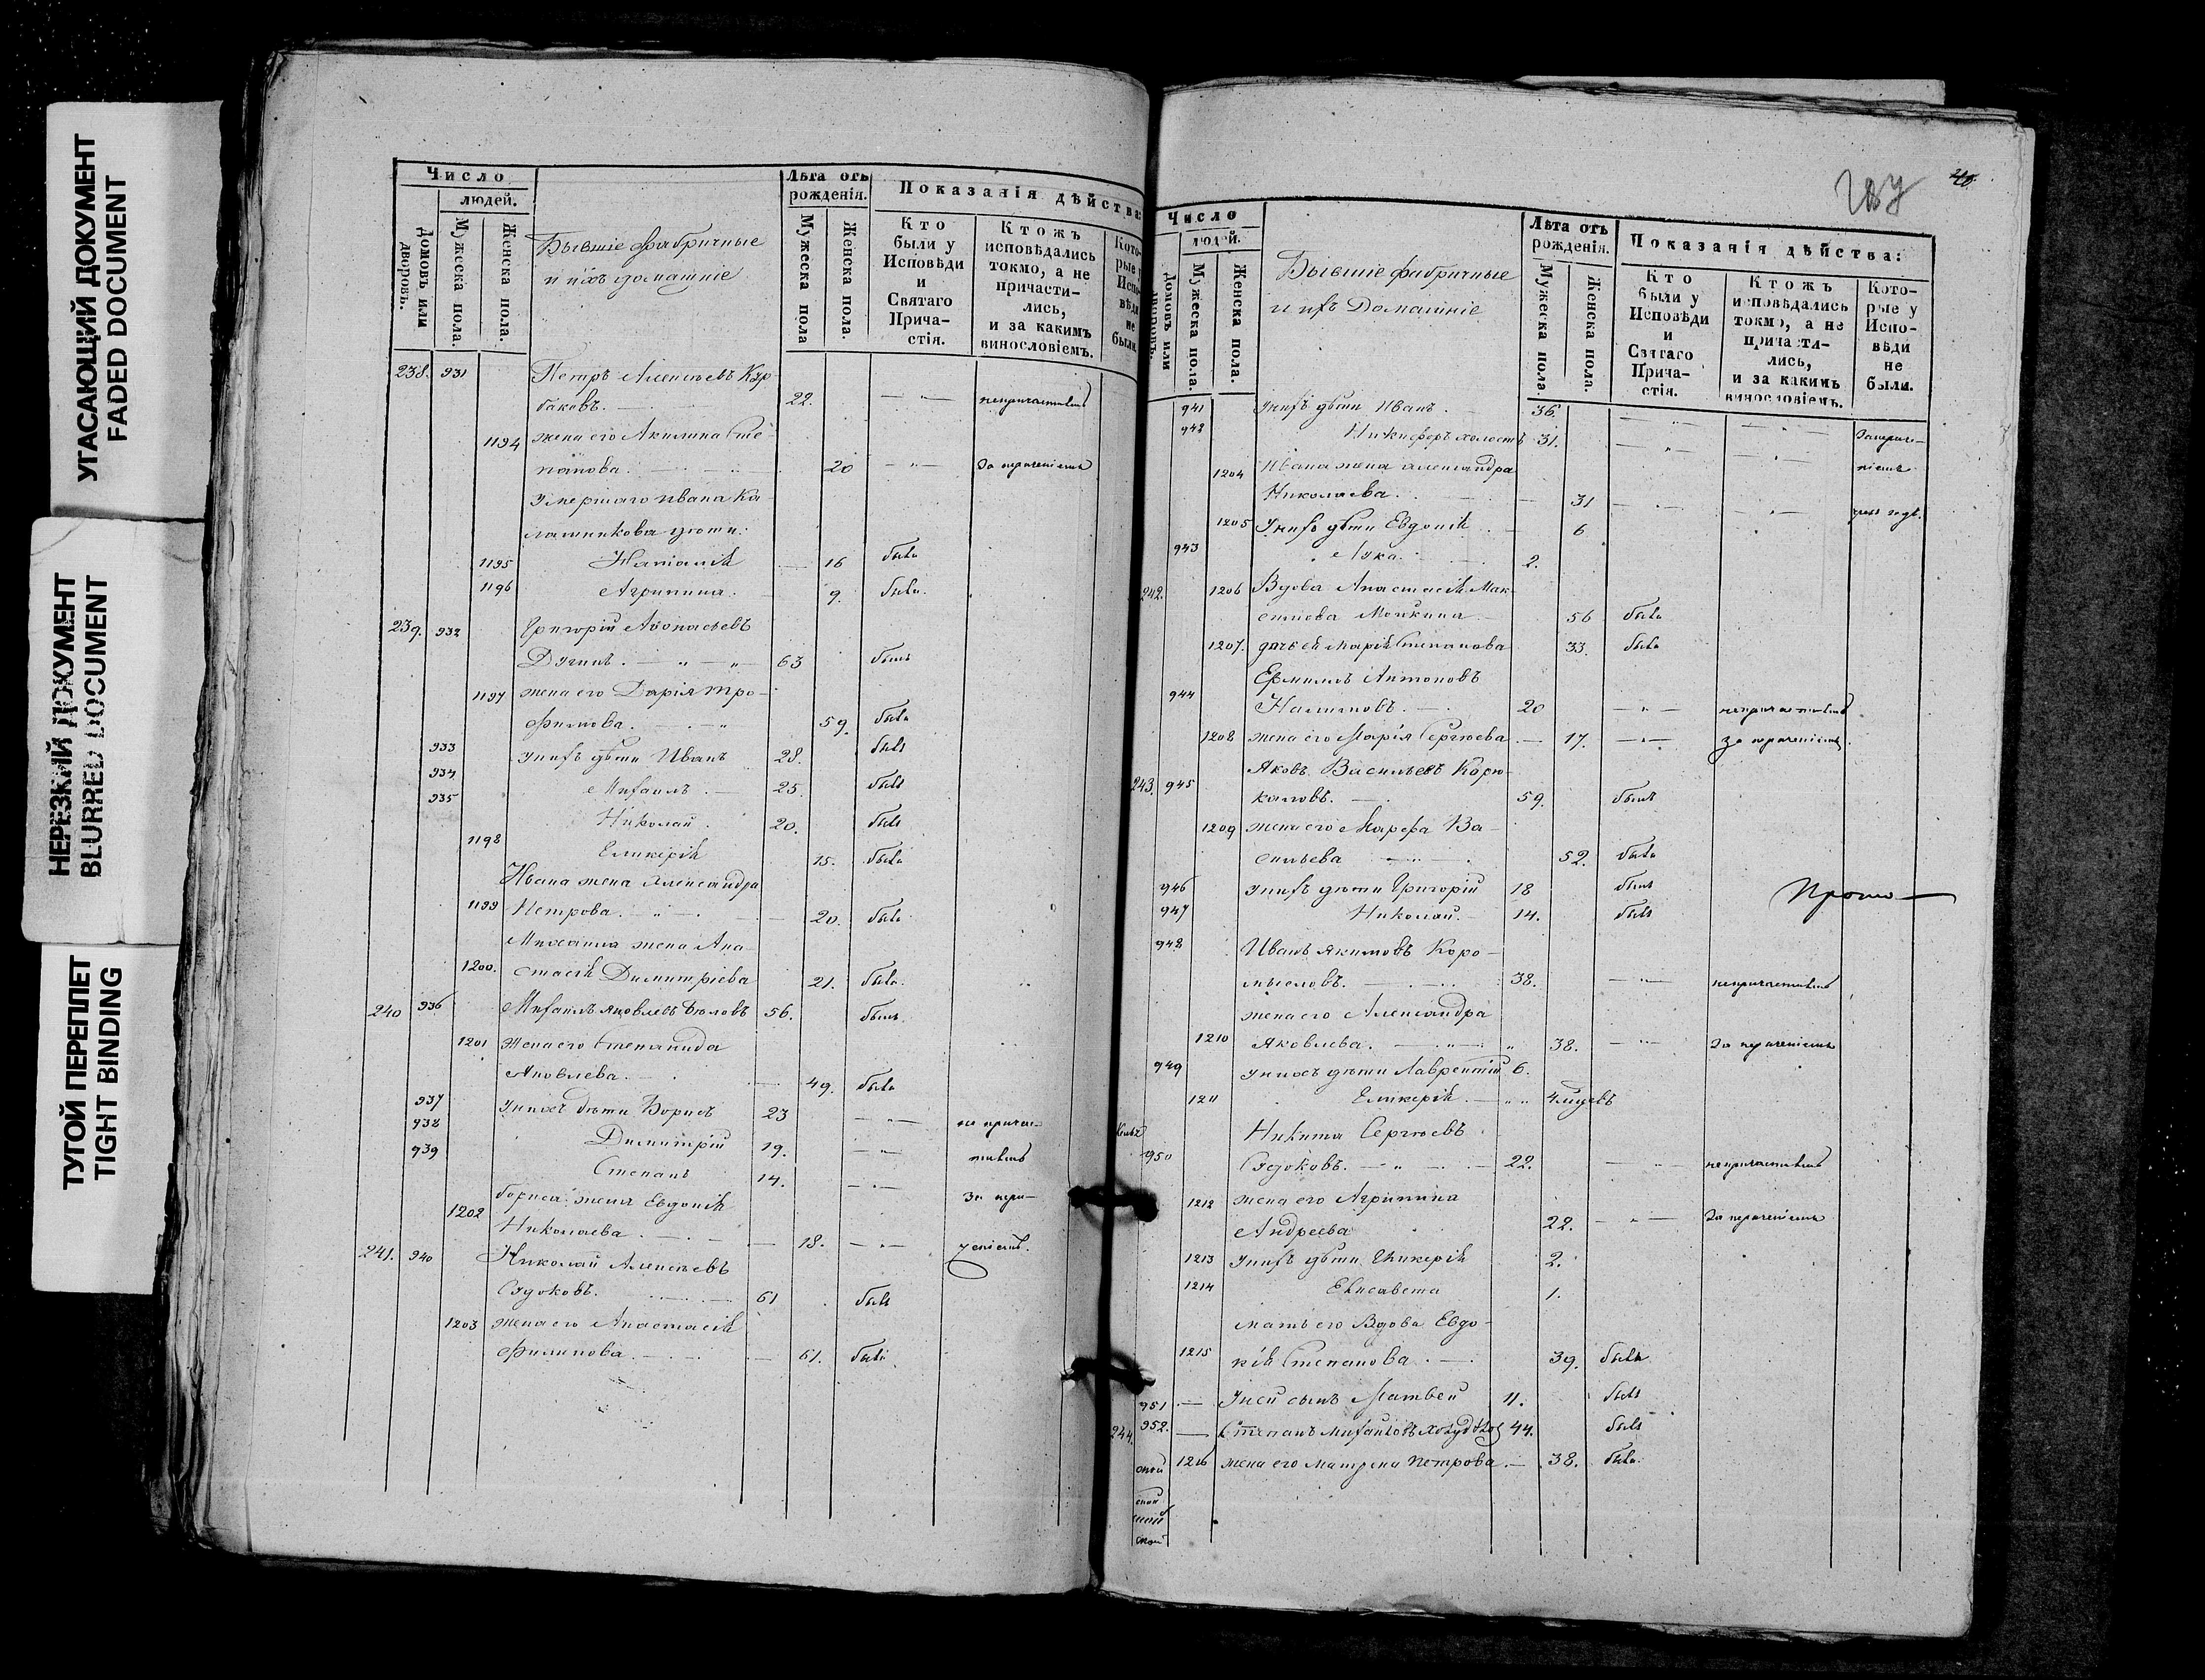 УГАСАЮЩИЙ ДОКУМЕНТ
FADED DOCUMENT
НЕРЕЗКИЙ ДОКУМЕНТ
BLURRED DOCUMENT
ТУГОЙ ПЕРЕПЛЕТ
TIGHT BINDING
Число
людей.
Домовъ или дворовъ.
Мужеска пола.
Женска пола.
Бывшіе фабричные
и ихъ домашніе
Лѣта отъ рожденія.
Мужеска пола
Женска пола.
Показанія дѣйства:
Кто были у Исповѣди и Святаго Причастія.
Ктожъ исповѣдались токмо, а не причастились, и за какимъ винословіемъ.
Которые у Исповѣди не были.
238. 931 Петръ Алексѣевъ Кур-
баковъ. 22. непричастивш
1194 жена его Акилина Сте-
панова. 20 За
Умершаго Ивана Ка-
лашникова дѣти:
1195 Наталія 16 была
1196 Агрипина. 9. была.
239. 932 Григорій Аѳонасьевъ
63 былъ
1197 жена его Дарія Тро-
фимова. 59. была
933 У нихъ дѣти Иванъ 28. былъ
934 Михаилъ 25. былъ
935 Николай 20. былъ
1198 Гликерія 15. была
Ивана жена Александра
1199 Петрова. 20. была
Михаила жена Ана-
1200. стасія Димитріева 21. была.
240 936 Михаилъ Яковлевъ 56. былъ
1201 Жена его Степанида
Яковлева. 49. была
937 У нихъ дѣти Борисъ 23 не причас-
938 Димитрій 19. тившъ
939 Степанъ 14.
1202 Бориса жена Евдокія
Николаева 18.
241. 940 Николай Алексѣевъ
Судоковъ. 61 былъ
1203 жена его Анастасія
Филипова. 61. была
40.
Число
людей.
Домовъ или дворовъ.
Мужеска пола.
Женска пола.
Бывшіе фабричные
и ихъ Домашніе
Лѣта отъ рожденія.
Мужеска пола
Женска пола.
Показанія дѣйства:
Кто были у Исповѣди и Святаго Причастія.
Ктожъ исповѣдались токмо, а не причастились, и за какимъ винословіемъ.
Которые у Исповѣди не были.
941 У нихъ дѣти Иванъ 36.
942 Никифоръ холостъ 31.
1204 Ивана жена Александра
Николаева. 31
1205 У нихъ дѣти Евдокія 6
943 Лука. 2.
242. 1206 Вдова Анастасія Мак-
симова Мошкина 56 была
1207. дочь ея Марія Степанова 33. была
Ермилъ Антоновъ
944 20 непричастившъ
1208 жена его Марія Сергѣева 17.
243. 945 Яковъ Васильевъ Корю-
каловъ. 59. былъ
1209 жена его Марфа Ва-
сильева 52. была
946 У нихъ дѣти Григорій 18 былъ
947 Николай. 14. былъ
948 Иванъ Якимовъ Коро-
мысловъ. 38. непричастившъ
жена его Александра
1210 Яковлева. 38.
949 У нихъ дѣти Лаврентій 6.
1211 Гликерія
Никита Сергѣевъ
950 Судоковъ. 22. непричастившъ
1212 жена его Агрипина
Андреева 22.
1213 У нихъ дѣти Гликерія 2.
1214 Елисавета 1.
мать его Вдова Евдо-
1215 кія Степанова. 39. была
951 У ней сынъ Матвей 11. былъ
244. 952. Степанъ Михайловъ 44. былъ
1216 жена его Матрена Петрова. 38. была